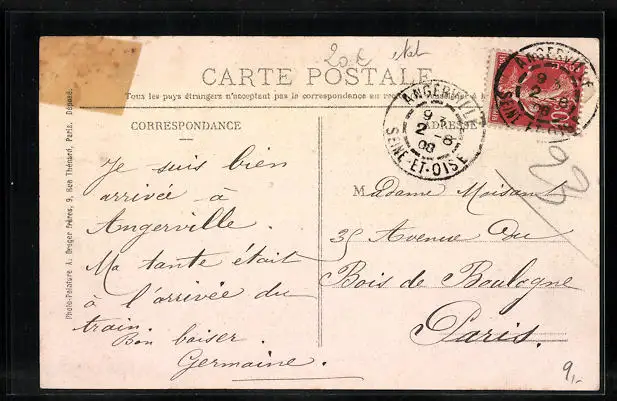 20€ état
CARTE POSTALE
Tous les pays étrangers n'acceptent pas la correspondance au
CORRESPONDANCE
ADRESSE
Je suis bien
arrivée à
Angerville.
Ma tante était
à l'arrivée du
train.
Bon baiser.
Germaine.
Photo-Peinture A. Breger Frères, 9, Rue Thénard, Paris. Déposé.
ANGERVILLE
9
2 -8
08
SEINE-ET-OISE
ANGERVILLE
9
2 -8
08
SEINE-ET-OISE
10
M adame Moisant
35 Avenue du
Bois de Boulogne
Paris.
9,-